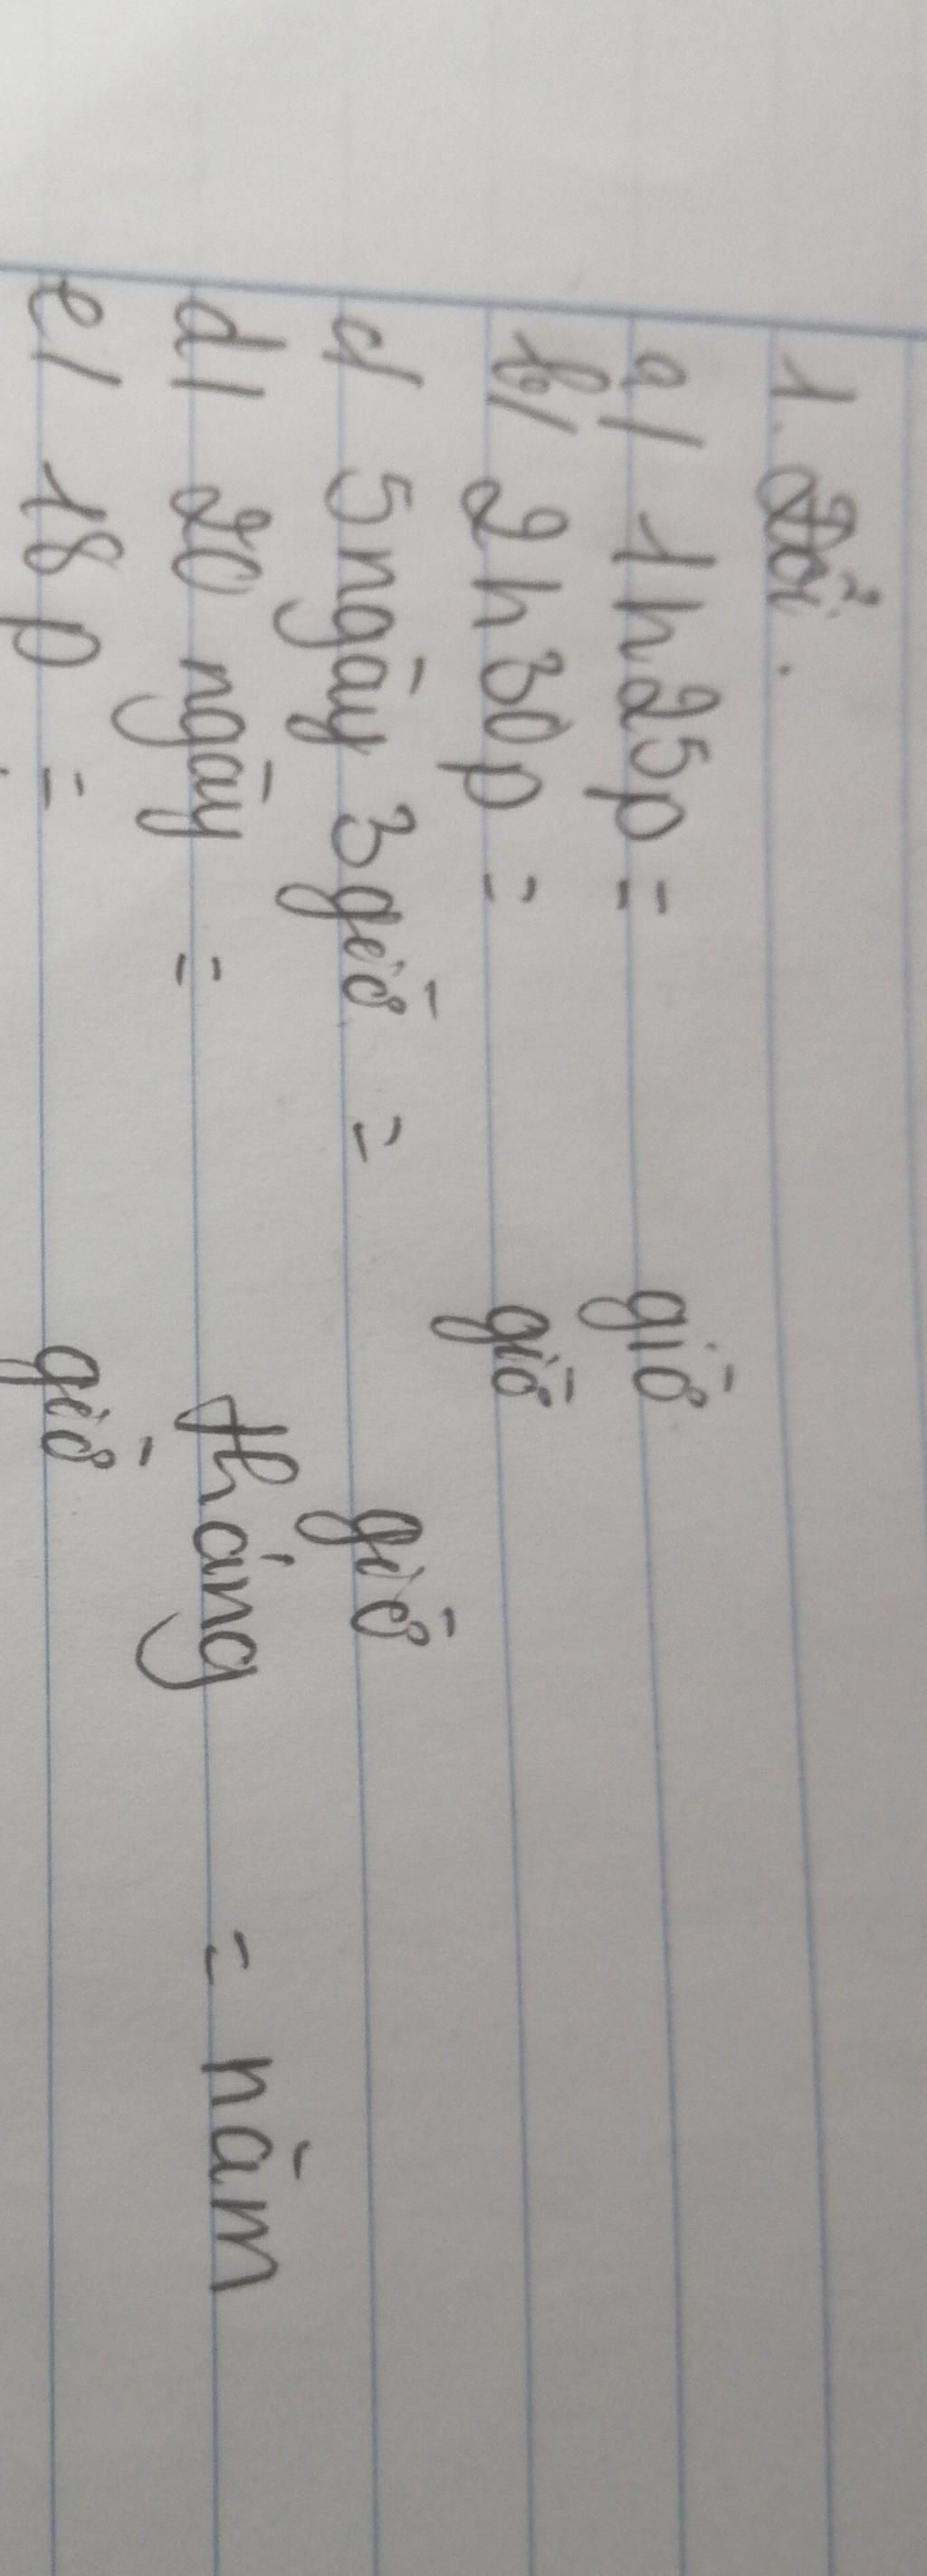 1. Đổi.
a/ 1h25p = giờ
b/ 2h30p = giờ
c/ 5 ngày 3 giờ = giờ
d/ 20 ngày = tháng = năm
e/ 18p = giờ